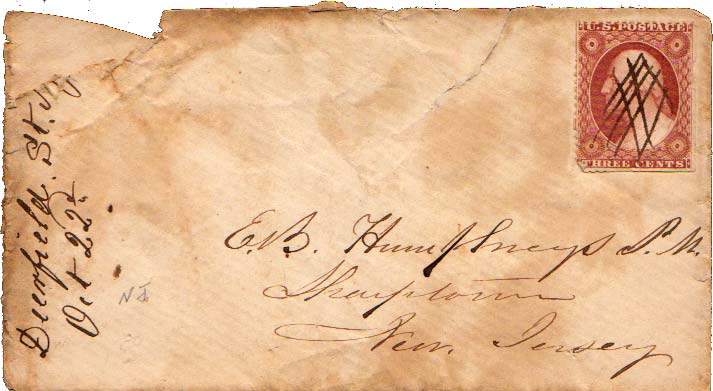 U.S. POSTAGE
THREE CENTS
Deerfield. St. NJ
Oct 22d
E.B. Humphreys P.M.
Sharptown
New. Jersey
NJ